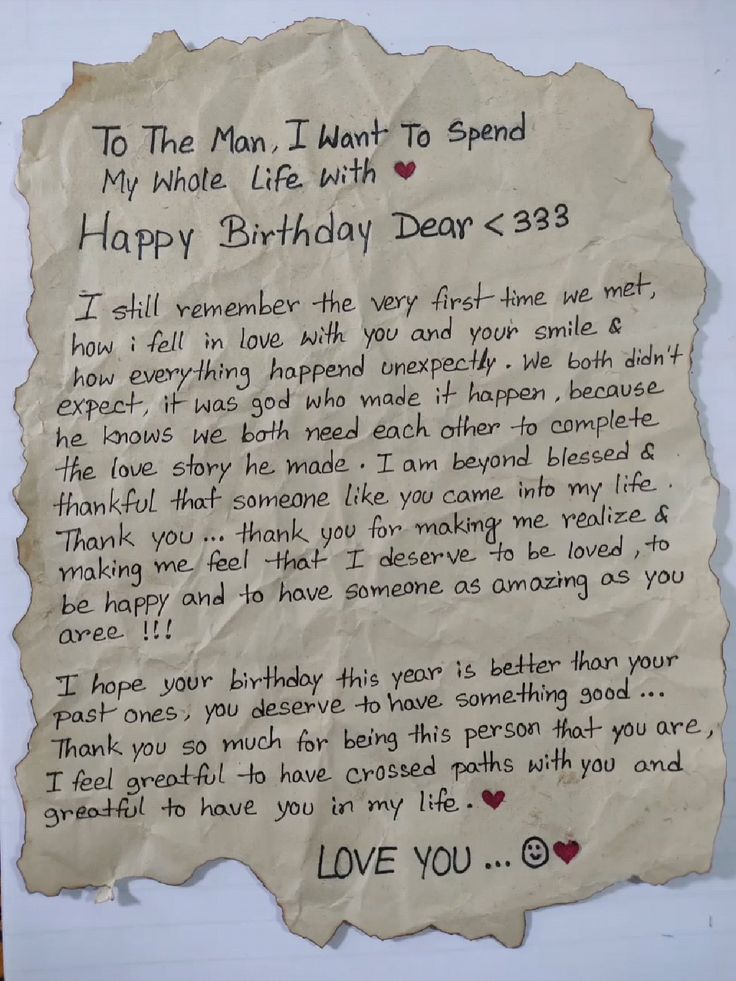 To The Man, I Want To Spend
My Whole Life With ❤
Happy Birthday Dear <333
I still remember the very first time we met,
how i fell in love with you and your smile &
how everything happend unexpectly. We both didn't
expect, it was god who made it happen, because
he knows we both need each other to complete
the love story he made. I am beyond blessed &
thankful that someone like you came into my life.
Thank you... thank you for making me realize &
making me feel that I deserve to be loved, to
be happy and to have someone as amazing as you
aree !!!
I hope your birthday this year is better than your
past ones, you deserve to have something good...
Thank you so much for being this person that you are,
I feel greatful to have crossed paths with you and
greatful to have you in my life. ❤
LOVE YOU... ☺❤